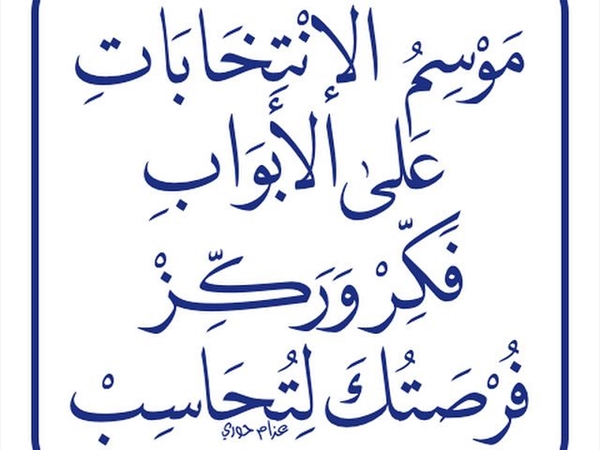 مَوْسِمُ الإنْتِخَابَاتِ
عَلىٰ الأَبوَابِ
فَكِّرْ وَرَكِّزْ
فُرْصَتُكَ لِتُحَاسِبْ
عزام حوري